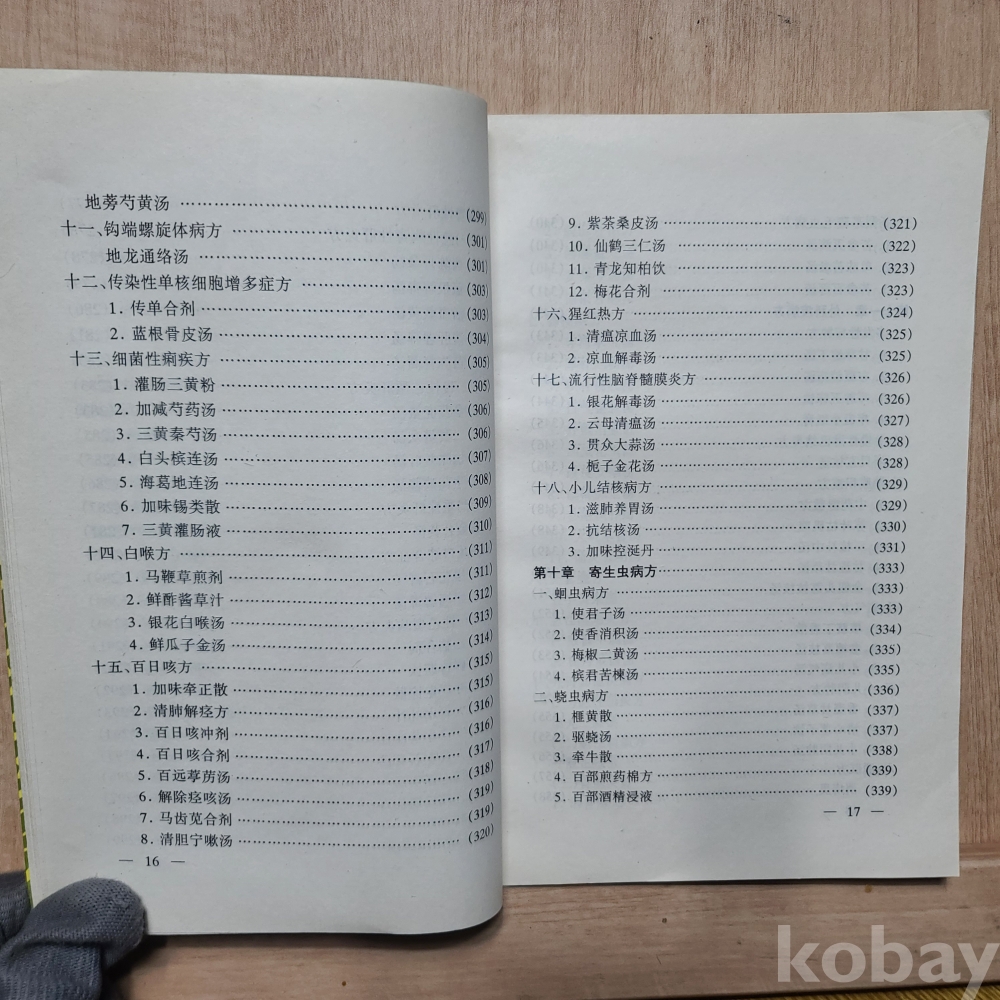 地蒡芍黄汤 …… (299)
十一、钩端螺旋体病方 …… (301)
地龙通络汤 …… (301)
十二、传染性单核细胞增多症方 …… (303)
1. 传单合剂 …… (303)
2. 蓝根骨皮汤 …… (304)
十三、细菌性痢疾方 …… (305)
1. 灌肠三黄粉 …… (305)
2. 加减芍药汤 …… (306)
3. 三黄秦芍汤 …… (306)
4. 白头槟连汤 …… (307)
5. 海葛地连汤 …… (308)
6. 加味锡类散 …… (309)
7. 三黄灌肠液 …… (310)
十四、白喉方 …… (311)
1. 马鞭草煎剂 …… (311)
2. 鲜酢酱草汁 …… (312)
3. 银花白喉汤 …… (313)
4. 鲜瓜子金汤 …… (314)
十五、百日咳方 …… (315)
1. 加味牵正散 …… (315)
2. 清肺解痉方 …… (316)
3. 百日咳冲剂 …… (316)
4. 百日咳合剂 …… (317)
5. 百远葶苈汤 …… (318)
6. 解除痉咳汤 …… (319)
7. 马齿苋合剂 …… (319)
8. 清胆宁嗽汤 …… (320)
— 16 —
9. 紫茶桑皮汤 …… (321)
10. 仙鹤三仁汤 …… (322)
11. 青龙知柏饮 …… (323)
12. 梅花合剂 …… (323)
十六、猩红热方 …… (324)
1. 清瘟凉血汤 …… (325)
2. 凉血解毒汤 …… (325)
十七、流行性脑脊髓膜炎方 …… (326)
1. 银花解毒汤 …… (326)
2. 云母清瘟汤 …… (327)
3. 贯众大蒜汤 …… (328)
4. 栀子金花汤 …… (328)
十八、小儿结核病方 …… (329)
1. 滋肺养胃汤 …… (329)
2. 抗结核汤 …… (330)
3. 加味控涎丹 …… (331)
第十章 寄生虫病方 …… (333)
一、蛔虫病方 …… (333)
1. 使君子汤 …… (333)
2. 使香消积汤 …… (334)
3. 梅椒二黄汤 …… (335)
4. 槟君苦楝汤 …… (335)
二、蛲虫病方 …… (336)
1. 榧黄散 …… (337)
2. 驱蛲汤 …… (337)
3. 牵牛散 …… (338)
4. 百部煎药棉方 …… (339)
5. 百部酒精浸液 …… (339)
— 17 —
kobay